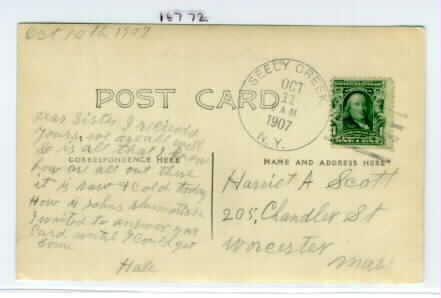 16772
Oct 10th 1907
SEELY CREEK
OCT
22
AM
1907
N.Y.
POST CARD
Dear Sister I received
Yours, we are all well
& is all that I know
CORRESPONDENCE HERE
NAME AND ADDRESS HERE
how are all out there
it is raw & cold today
How is Johns rheumatism
I waited to answer your
Card until I could get
some
Hale
Harriet A Scott
205, Chandler St
Worcester
Mass